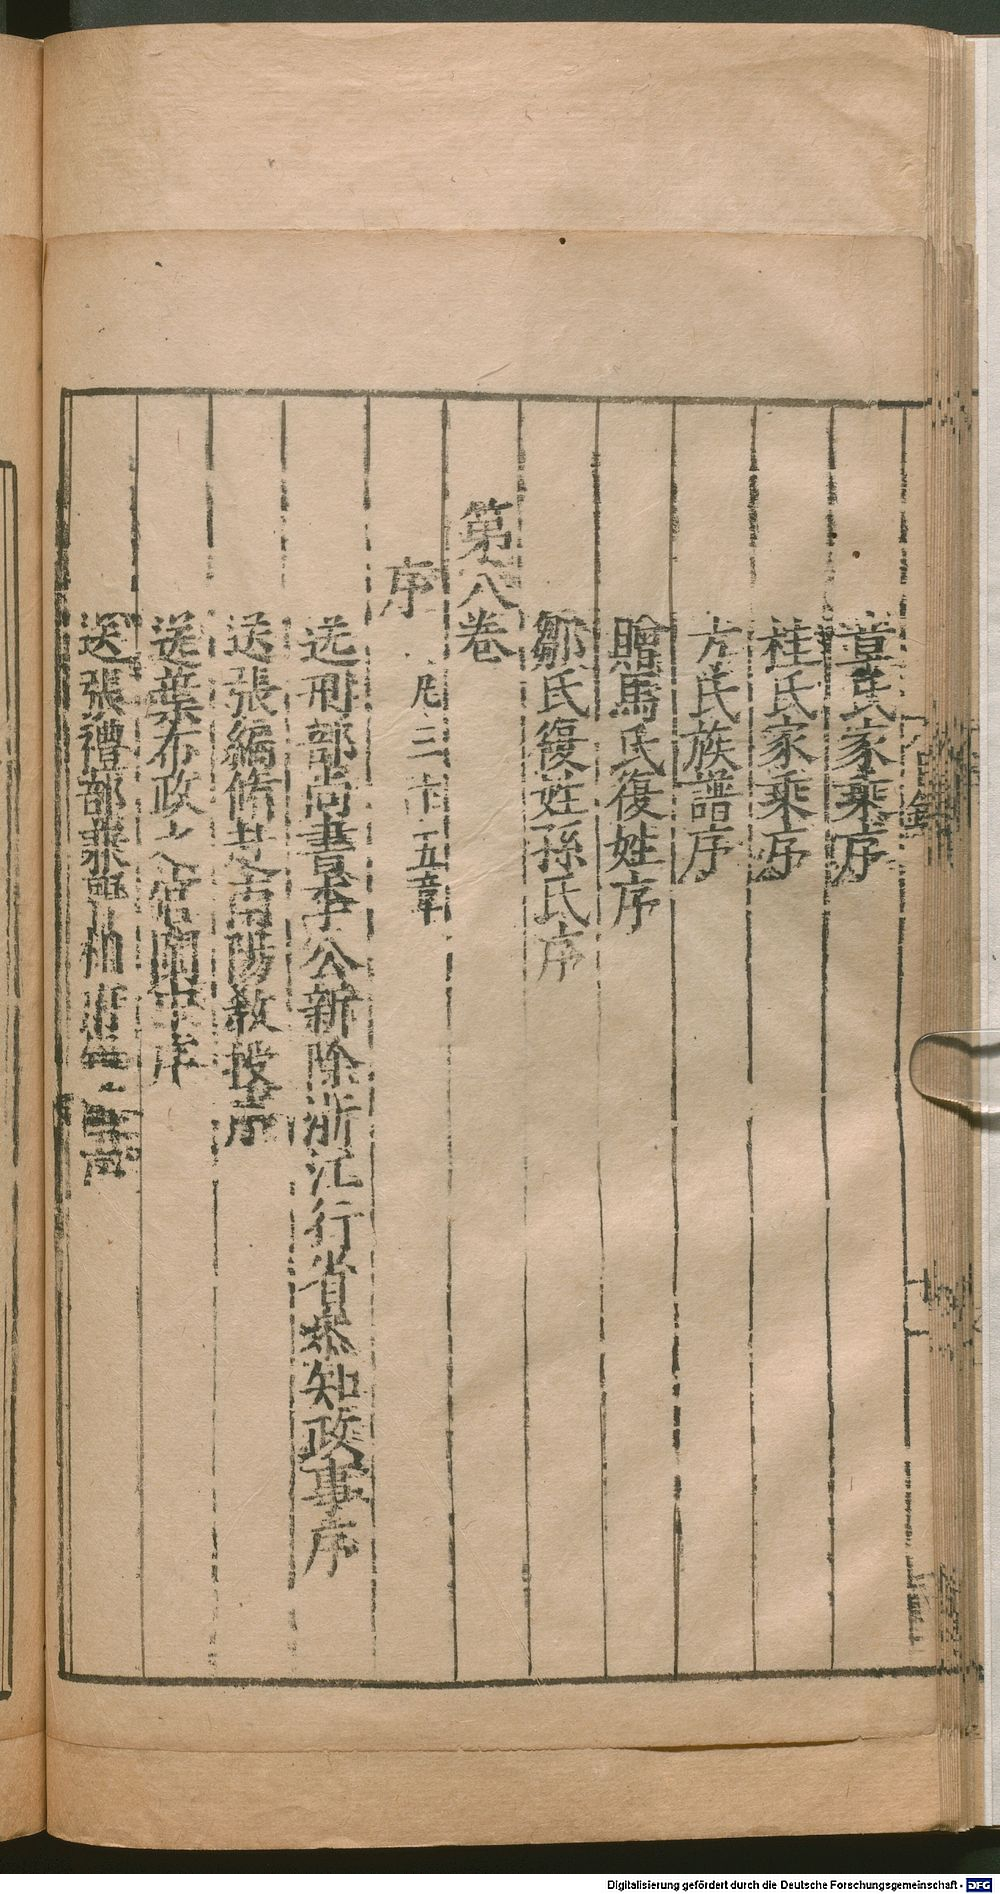 章氏家乘序
桂氏家乘序
方氏族譜序
贈馬氏復姓序
鄒氏復姓孫氏序
第八卷
序
凡三十五章
送刑部尚書李公新除浙江行省叅知政事序
送張編脩赴南陽教授序
送葉布政之官閩中序
送張禮部兼晉相府
Digitalisierung gefördert durch die Deutsche Forschungsgemeinschaft - DFG